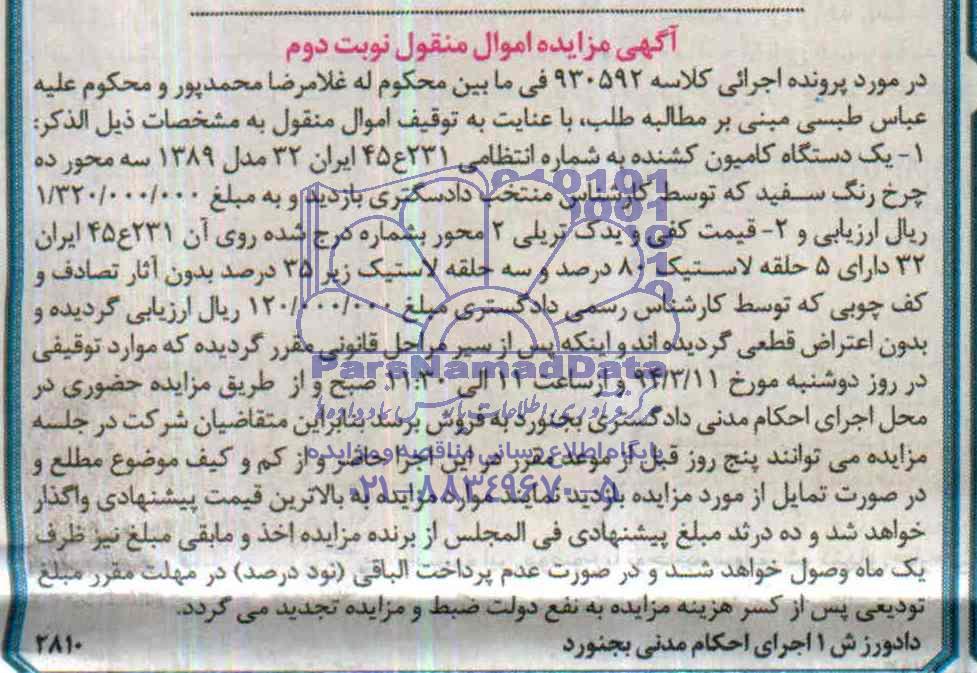 آگهی مزایده اموال منقول نوبت دوم
در مورد پرونده اجرائی کلاسه ۹۳۰۵۹۲ فی ما بین محکوم له غلامرضا محمدپور و محکوم علیه
عباس طبسی مبنی بر مطالبه طلب، با عنایت به توقیف اموال منقول به مشخصات ذیل الذکر:
۱- یک دستگاه کامیون کشنده به شماره انتظامی ۲۳۱ع۴۵ ایران ۳۲ مدل ۱۳۸۹ سه محور ده
چرخ رنگ سفید که توسط کارشناس منتخب دادسگتری بازدید و به مبلغ ۱/۳۲۰/۰۰۰/۰۰۰
ریال ارزیابی و ۲- قیمت کفی و یدک تریلی ۲ محور بشماره درج شده روی آن ۲۳۱ع۴۵ ایران
۳۲ دارای ۵ حلقه لاستیک ۸۰ درصد و سه حلقه لاستیک زیر ۳۵ درصد بدون آثار تصادف و
کف چوبی که توسط کارشناس رسمی دادگستری مبلغ ۱۲۰/۰۰۰/۰۰۰ ریال ارزیابی گردیده و
بدون اعتراض قطعی گردیده اند و اینکه پس از سیر مراحل قانونی مقرر گردیده که موارد توقیفی
در روز دوشنبه مورخ ۹۴/۳/۱۱ و ازساعت ۱۱ الی ۱۱:۳۰ صبح و از طریق مزایده حضوری در
محل اجرای احکام مدنی دادگستری بجنورد به فروش برسد بنابراین متقاضیان شرکت در جلسه
مزایده می توانند پنج روز قبل از موعد مقرر در این اجرا حاضر و از کم و کیف موضوع مطلع و
در صورت تمایل از مورد مزایده بازدید نمایند موارد مزایده به بالاترین قیمت پیشنهادی واگذار
خواهد شد و ده درئد مبلغ پیشنهادی فی المجلس از برنده مزایده اخذ و مابقی مبلغ نیز ظرف
یک ماه وصول خواهد شد و در صورت عدم پرداخت الباقی (نود درصد) در مهلت مقرر مبلغ
تودیعی پس از کسر هزینه مزایده به نفع دولت ضبط و مزایده تجدید می گردد.
دادورز ش ۱ اجرای احکام مدنی بجنورد
۲۸۱۰
ParsNamadData
پایگاه اطلاع رسانی مناقصه و مزایده
۰۲۱-۸۸۳۴۹۶۷۰-۵